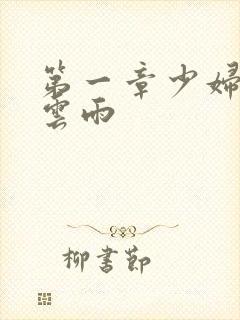 第一章少婦
雲雨
柳書節